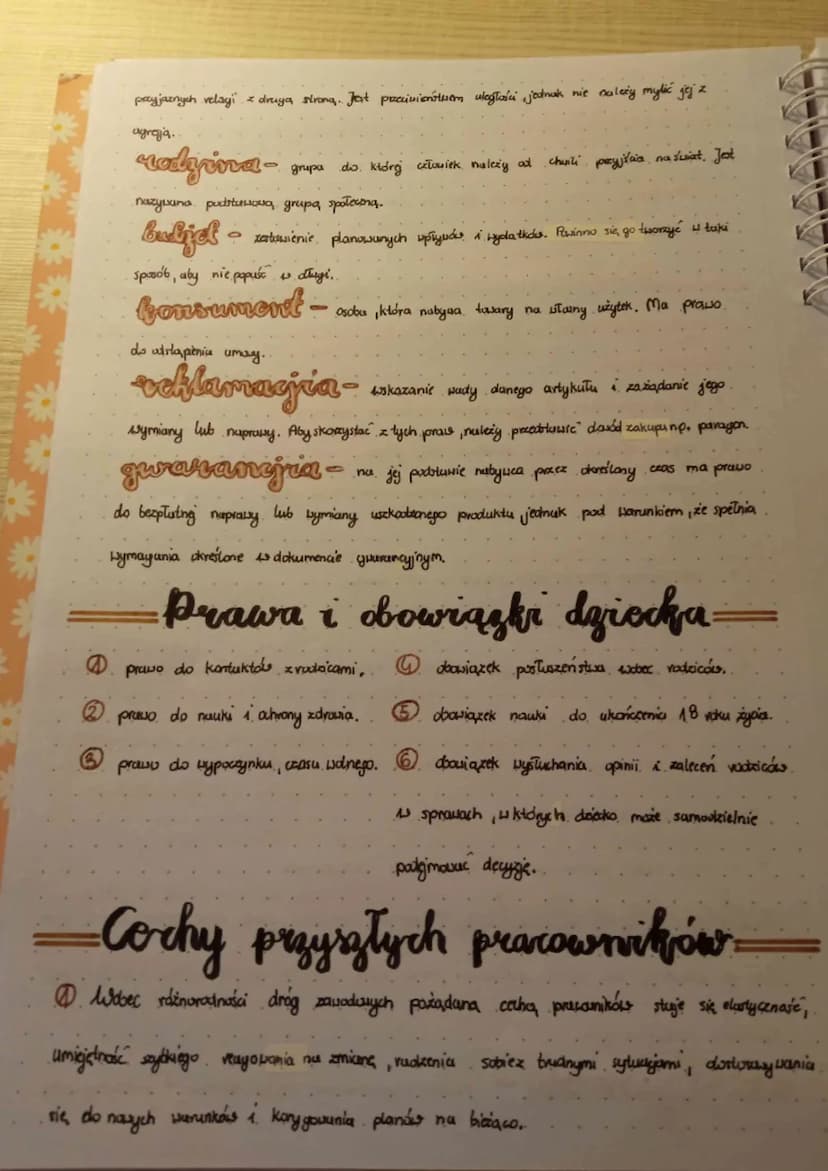 przyjaznych relacji z drugą stroną. Jest przeciwieństwem uległości, jednak nie należy mylić jej z
agresją.
rodzina - grupa do której człowiek należy od chwili przyjścia na świat. Jest
nazywana podstawową grupą społeczną.
budżet - zestawienie planowanych wpływów i wydatków. Powinno się go tworzyć w taki
sposób, aby nie popaść w długi.
konsument - osoba, która nabywa towary na własny użytek. Ma prawo
do odstąpienia umowy.
reklamacjia - wskazanie wady danego artykułu i zażądanie jego
wymiany lub naprawy. Aby skorzystać z tych praw, należy przedstawić dowód zakupu np. paragon.
gwarancjia - na jej podstawie nabywca przez określony czas ma prawo
do bezpłatnej naprawy lub wymiany uszkodzonego produktu, jednak pod warunkiem, że spełnia
wymagania określone w dokumencie gwarancyjnym.
Prawa i obowiązki dziecka
1 prawo do kontaktów z rodzicami.
2 prawo do nauki i ochrony zdrowia.
3 prawo do wypoczynku, czasu wolnego.
4 obowiązek posłuszeństwa wobec rodziców.
5 obowiązek nauki do ukończenia 18 roku życia.
6 obowiązek wysłuchania opinii i zaleceń rodziców
w sprawach, w których dziecko może samodzielnie
podejmować decyzję.
Cechy przyszłych pracowników
1 Wobec różnorodności dróg zawodowych pożądaną cechą pracowników staje się elastyczność,
umiejętność szybkiego reagowania na zmianę, radzenia sobie z trudnymi sytuacjami, dostosowywania
się do nowych warunków i korygowania planów na bieżąco.